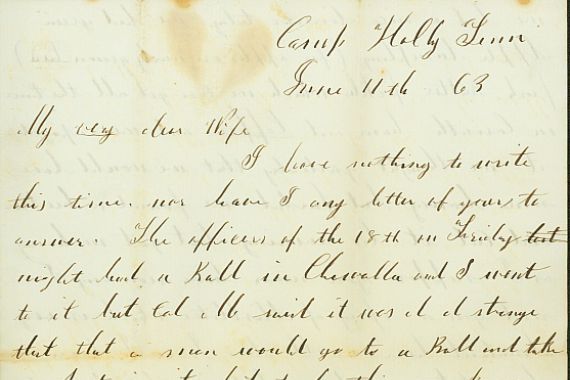 Camp Holly Tenn
June 11th 63
My very dear Wife
I have nothing to write
this time. nor have I any letter of yours to
answer. The officers of the 18th on Friday last
night had a Ball in Chewalla and I went
to it but Col Mc said it was d d strange
that that a man would go to a Ball and take